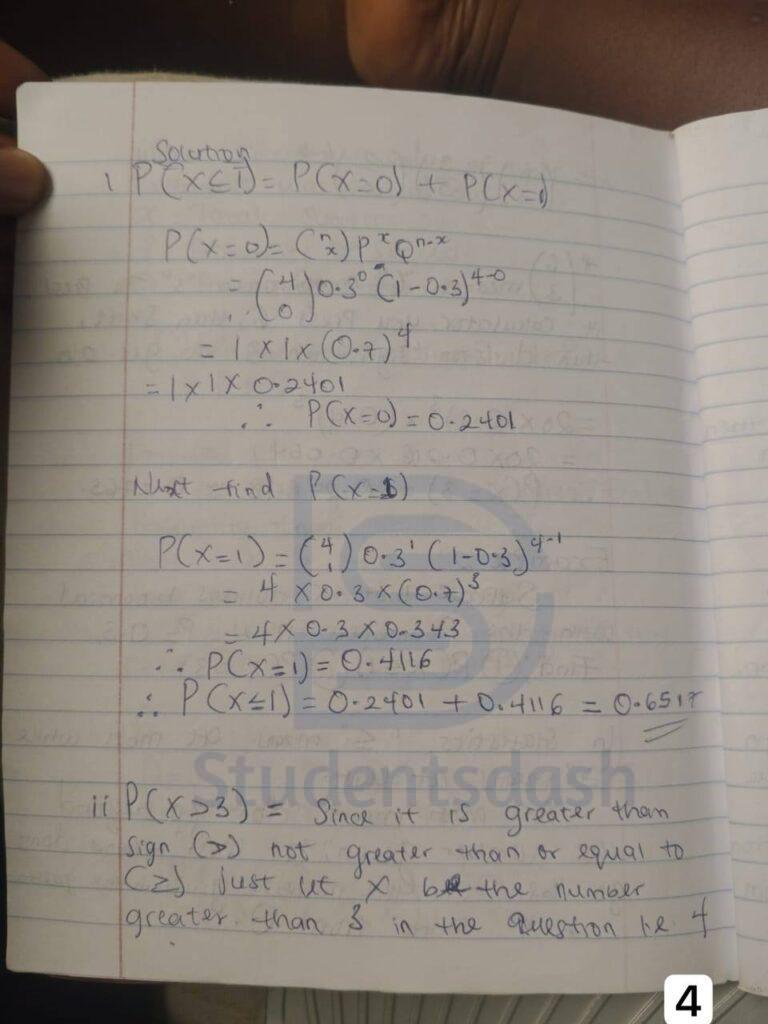 Solution
i P(X≤1) = P(X=0) + P(X=1)
P(X=0) = (n x) P^x Q^n-x
= (4 0) 0.3^0 (1-0.3)^4-0
= 1 x 1 x (0.7)^4
= 1 x 1 x 0.2401
∴ P(X=0) = 0.2401
Next find P(X=1)
P(X=1) = (4 1) 0.3^1 (1-0.3)^4-1
= 4 x 0.3 x (0.7)^3
= 4 x 0.3 x 0.343
∴ P(X=1) = 0.4116
∴ P(X≤1) = 0.2401 + 0.4116 = 0.6517
Studentsdash
ii P(X>3) = Since it is greater than
sign (>) not greater than or equal to
(≥) just let X be the number
greater than 3 in the question i.e 4
4